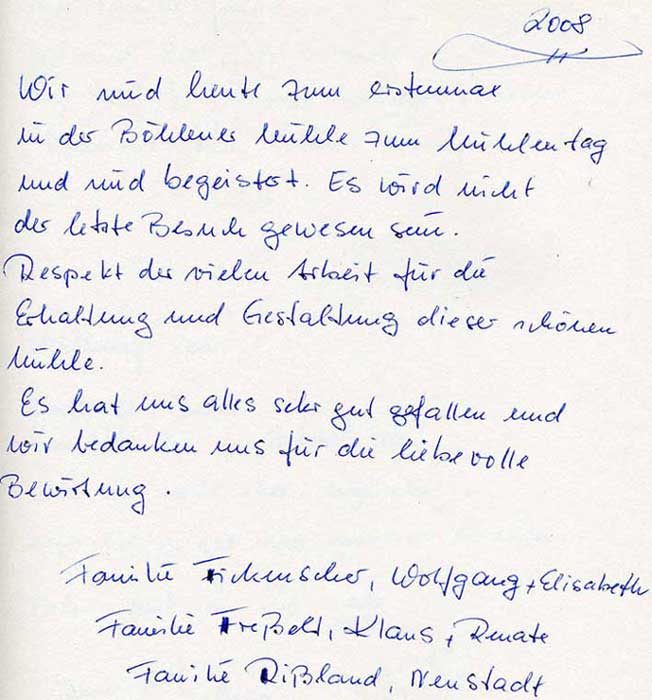 2008
Wir sind heute zum erstenmal
in der Böhlener Mühle zum Mühlentag
und sind begeistert. Es wird nicht
der letzte Besuch gewesen sein.
Respekt der vielen Arbeit für die
Erhaltung und Gestaltung dieser schönen
Mühle.
Es hat uns alles sehr gut gefallen und
wir bedanken uns für die liebevolle
Bewirtung.
Familie Fickenscher, Wolfgang + Elisabeth
Familie Klaus + Renate
Familie Rißland, Neustadt